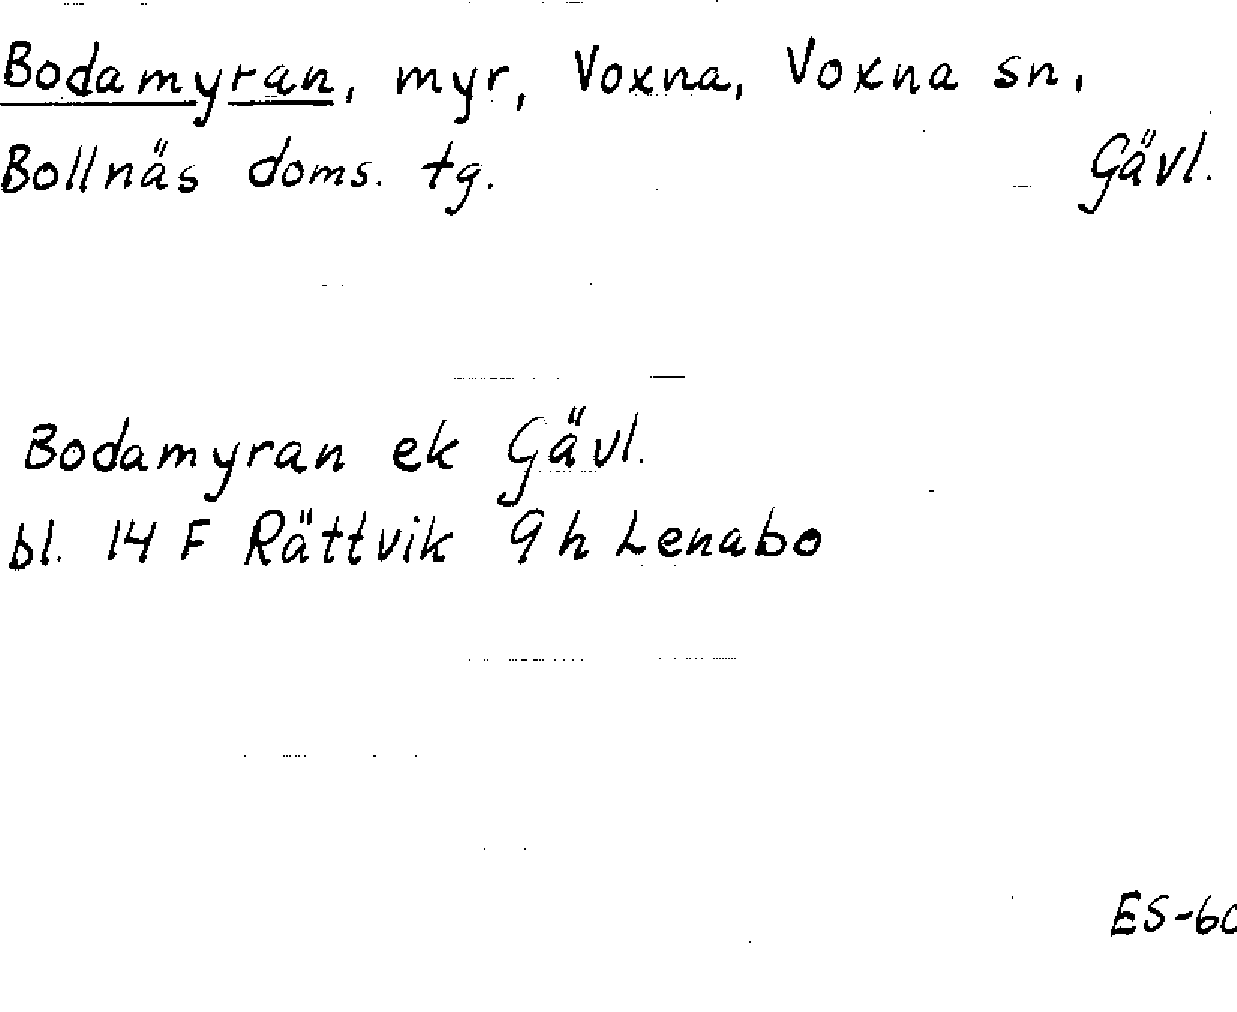 Bodamyran, myr, Voxna, Voxna sn,
Bollnäs doms. tg. Gävl.
Bodamyran ek Gävl.
bl. 14 F Rättvik 9 h Lenabo